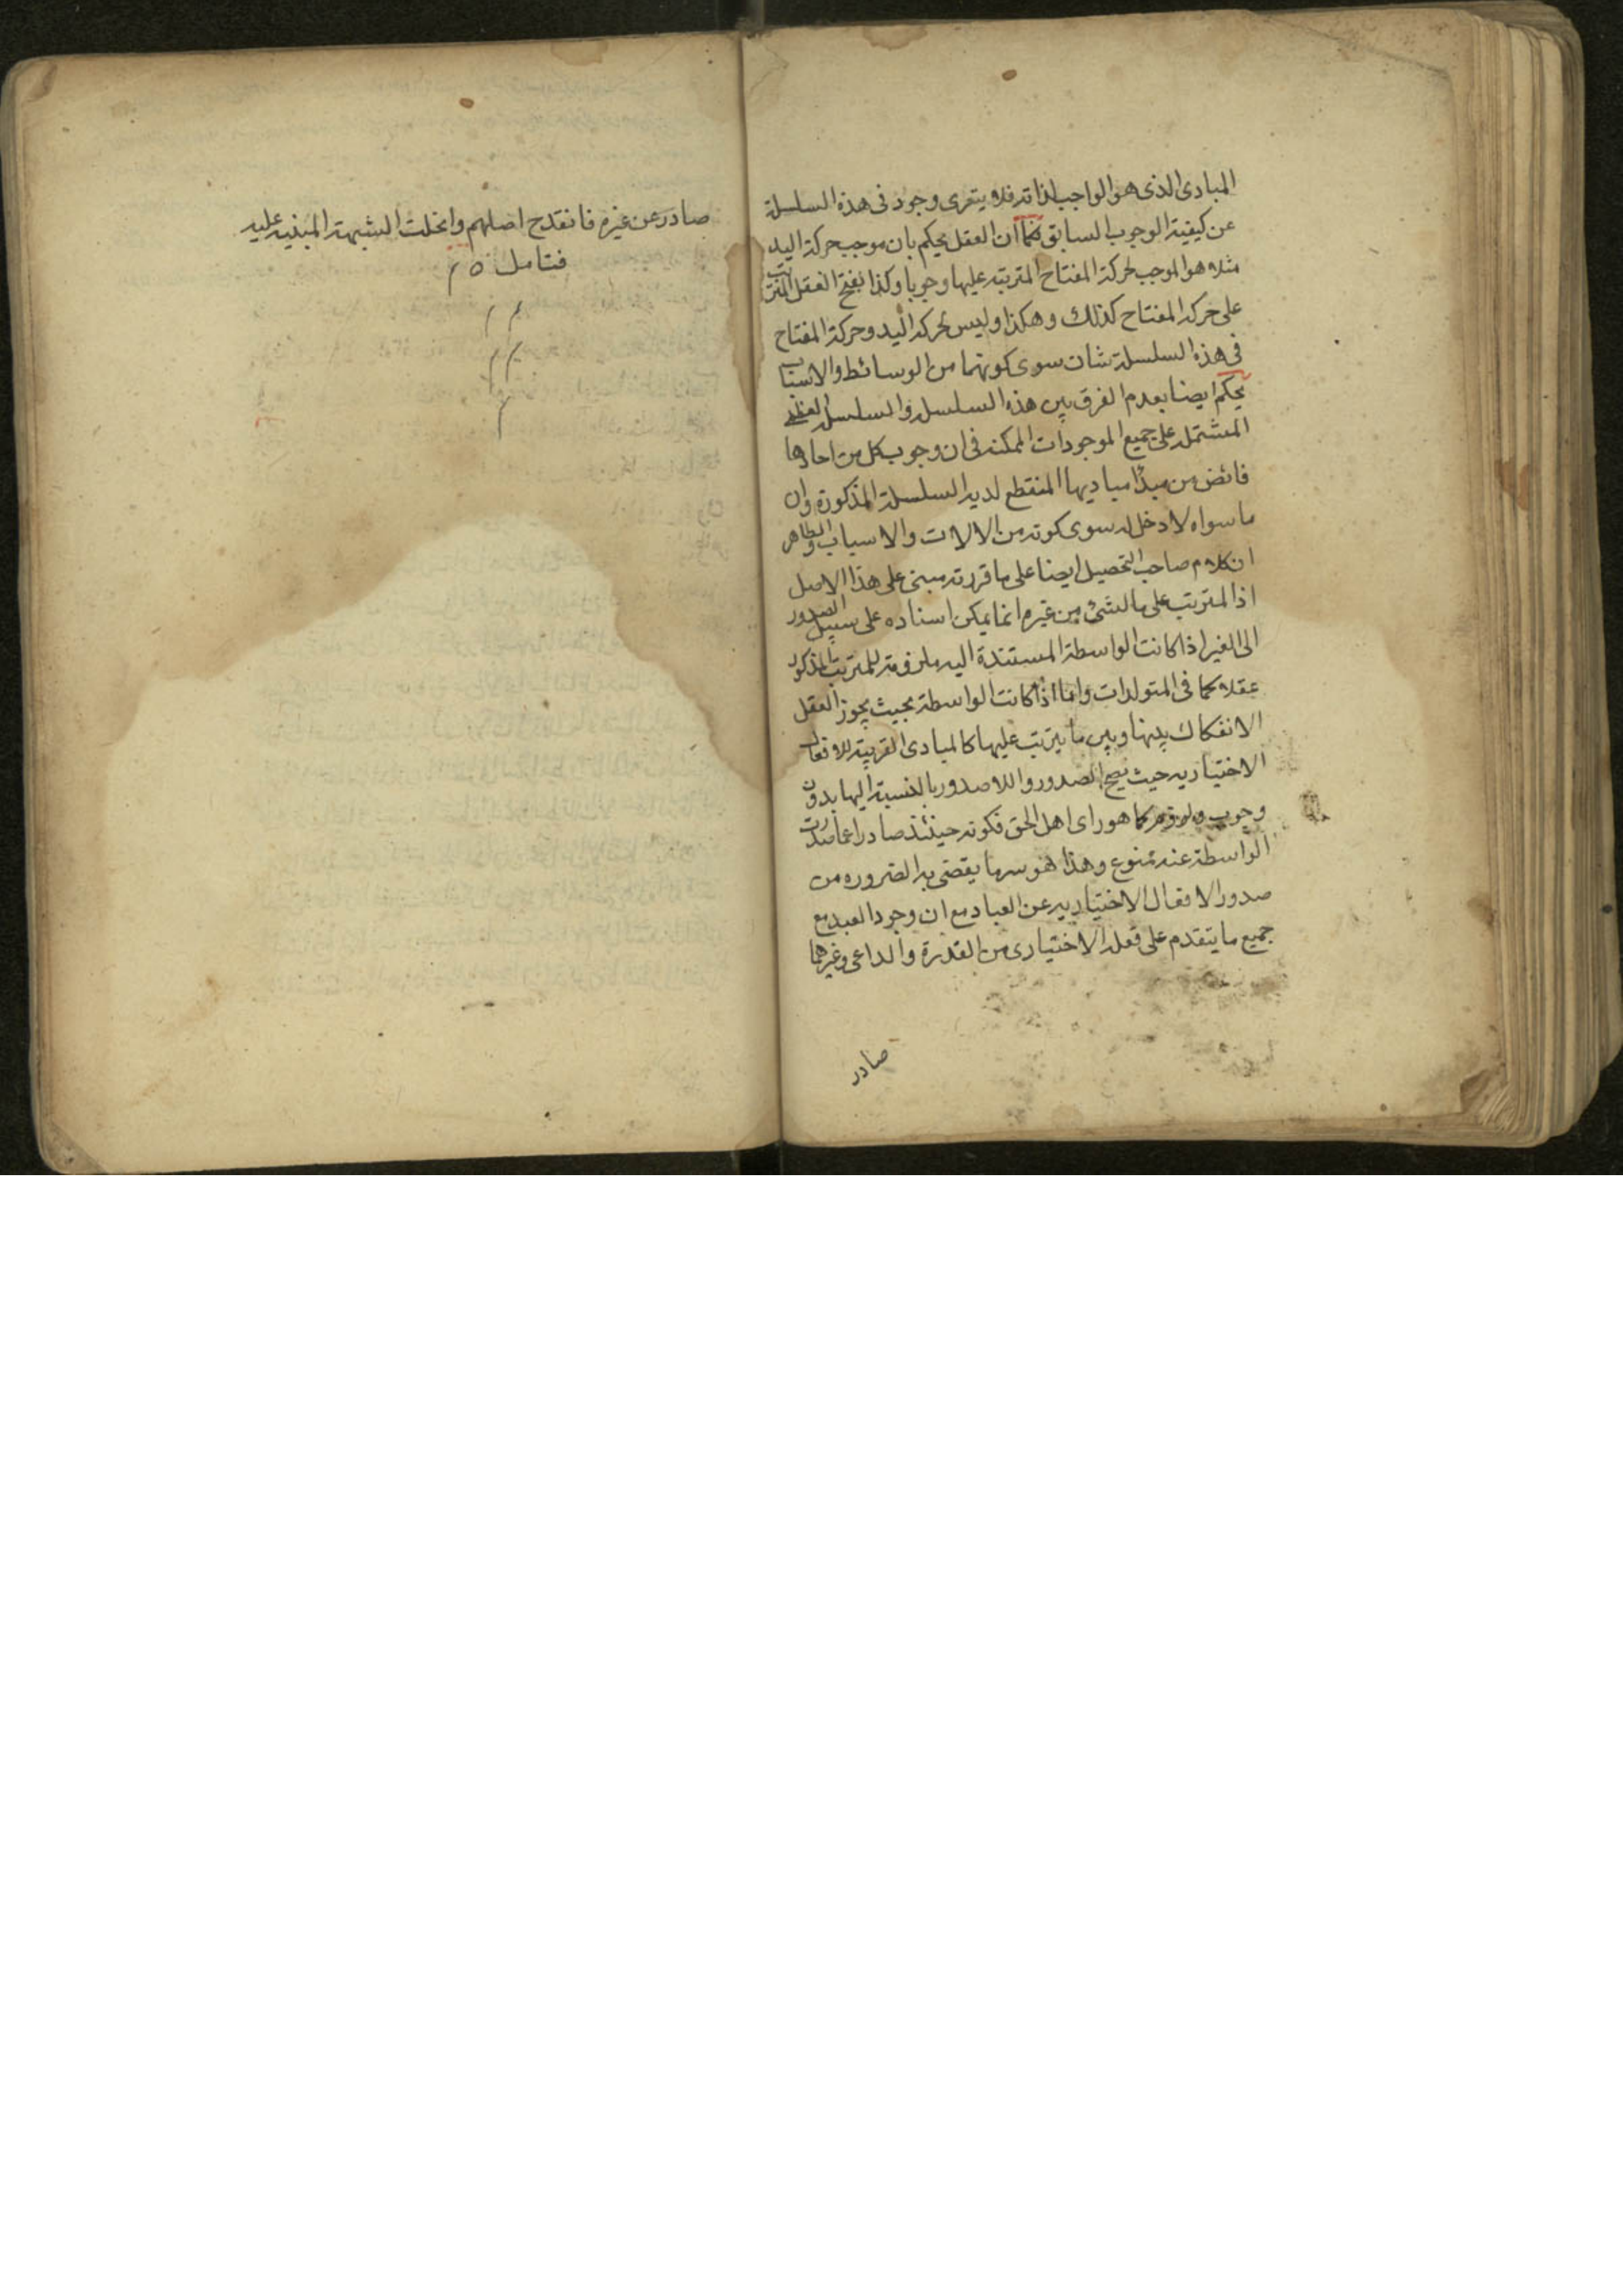 المبادى الذى هو الواجب لذاته فلا يتعرى وجود فى هذه السلسلة
عن كيفية الوجوب السابق فكما ان العقل يحكم بان موجب حركة اليد
مثلا هو الموجب لحركة المفتاح المترتبه عليها وجوبا وكذا بفتح القفل المترتب
على حركة المفتاح كذلك وهكذا وليس لحركة اليد وحركة المفتاح
فى هذه السلسلة شان سوى كونهما من الوسائط والاسباب
يحكم ايضا بعدم الفرق بين هذه السلسلة والسلسلة العظمى
المشتملة على جميع الموجودات الممكنه فى ان وجوب كل من احادها
فائض من مبدا مباديها المنقطع لديه السلسلة المذكورة وان
ما سواه لا دخل له سوى كونه من الالات والاسباب والظاهر
ان كلام صاحب التحصيل ايضا على ما قررته مبنى على هذا الاصل
اذ المترتب على ما لشئ من غيره انما يمكن اسناده على سبيل الصدور
الى الغير اذا كانت الواسطة المستندة اليه ملزومة للمترتب المذكور
عقلا كما فى المتولدات واما اذا كانت الواسطة بحيث يجوز العقل
الانفكاك بينها وبين ما يترتب عليها كالمبادى القريبة للافعال
الاختياريه حيث يصح الصدور واللاصدور بالنسبة اليها بدون
وجوب ولزوم كما هو راى اهل الحق فكونه حينئذ صادرا عما صدرت
الواسطة عنه ممنوع وهذا هو سر ما يقضى به الضروره من
صدور الافعال الاختياريه عن العباد مع ان وجود العبد مع
جميع ما يتقدم على فعله الاختيارى من القدرة والداعى وغيرهما
صادر
صادر عن غيره فانقدح اصلهم وانحلت الشبهة المبنيه عليه
فتامل ٥ م
م م
م م
م